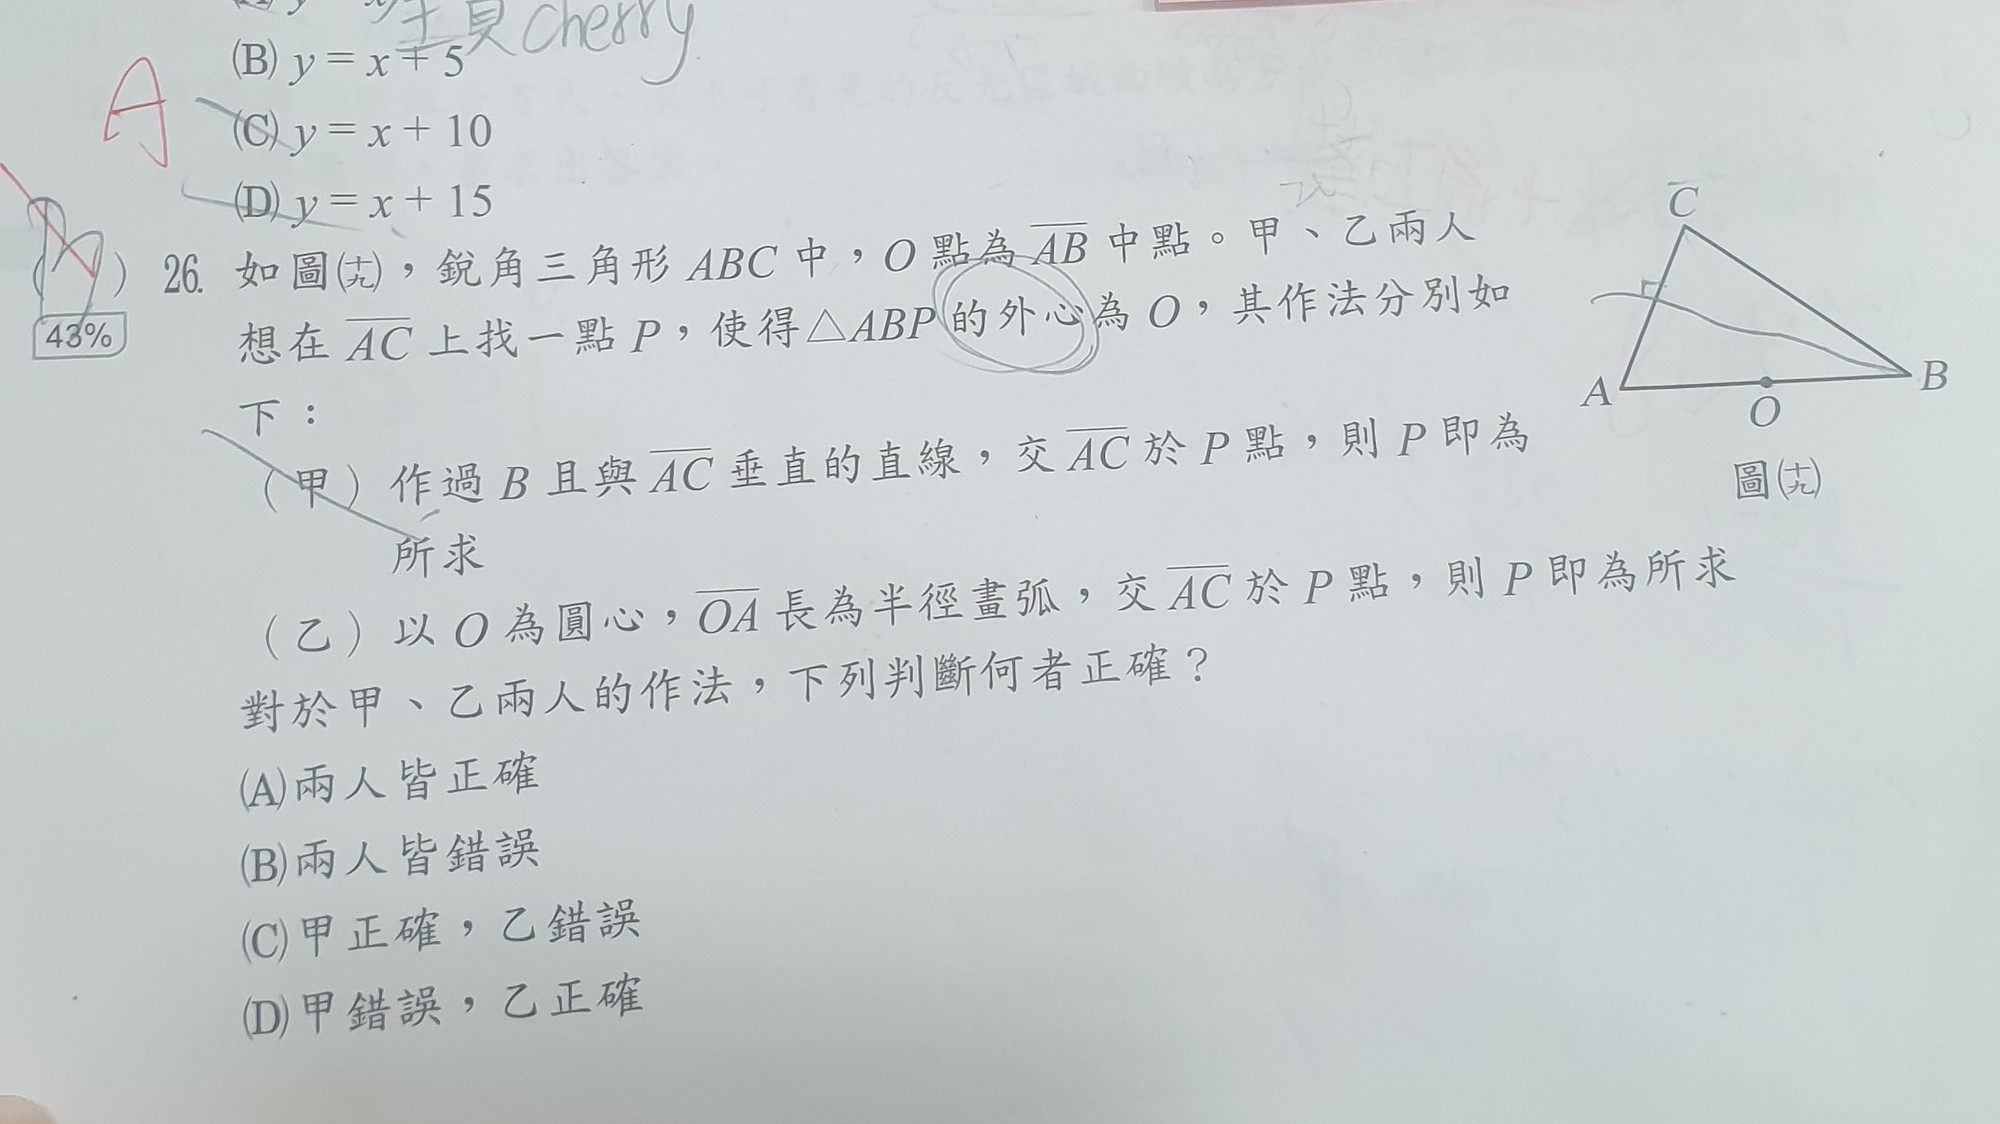 cherry
(B) y = x + 5
A
(C) y = x + 10
(D) y = x + 15
( ) 26. 如圖(十九)，銳角三角形 ABC 中，O 點為 AB 中點。甲、乙兩人
43%
想在 AC 上找一點 P，使得△ABP 的外心為 O，其作法分別如
下：
(甲) 作過 B 且與 AC 垂直的直線，交 AC 於 P 點，則 P 即為
所求
(乙) 以 O 為圓心，OA 長為半徑畫弧，交 AC 於 P 點，則 P 即為所求
對於甲、乙兩人的作法，下列判斷何者正確？
(A)兩人皆正確
(B)兩人皆錯誤
(C)甲正確，乙錯誤
(D)甲錯誤，乙正確
C
A
B
O
圖(十九)